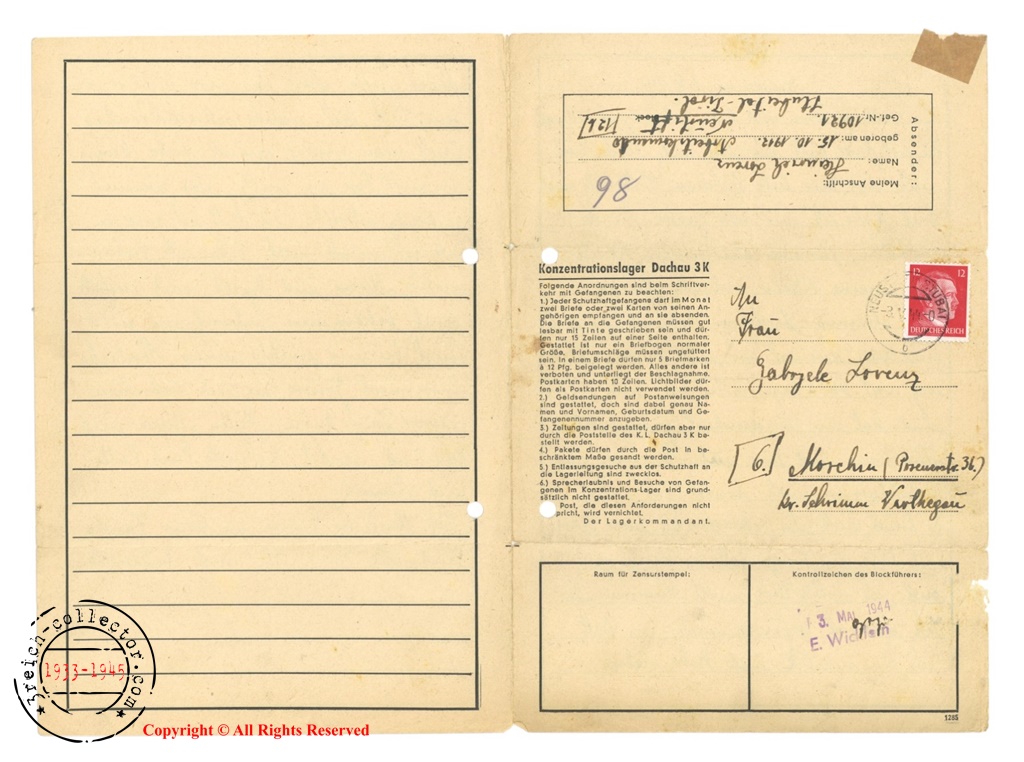 Absender:
Meine Anschrift:
Name: Heinrich Lorenz
geboren am: 15. 10. 1912. Arbeitskommando
Gef.-Nr. 10921 Neustift Block 12 b
Stubaital-Tirol.
98
Konzentrationslager Dachau 3 K
Folgende Anordnungen sind beim Schriftver-
kehr mit Gefangenen zu beachten:
1.) Jeder Schutzhaftgefangene darf im Monat
zwei Briefe oder zwei Karten von seinen An-
gehörigen empfangen und an sie absenden.
Die Briefe an die Gefangenen müssen gut
lesbar mit Tinte geschrieben sein und dür-
fen nur 15 Zeilen auf einer Seite enthalten.
Gestattet ist nur ein Briefbogen normaler
Größe. Briefumschläge müssen ungefüttert
sein. In einem Briefe dürfen nur 5 Briefmarken
à 12 Pfg. beigelegt werden. Alles andere ist
verboten und unterliegt der Beschlagnahme.
Postkarten haben 10 Zeilen. Lichtbilder dür-
fen als Postkarten nicht verwendet werden.
2.) Geldsendungen auf Postanweisungen
sind gestattet, doch sind dabei genau Na-
men und Vornamen, Geburtsdatum und Ge-
fangenennummer anzugeben.
3.) Zeitungen sind gestattet, dürfen aber nur
durch die Poststelle des K. L. Dachau 3 K be-
stellt werden.
4.) Pakete dürfen durch die Post in be-
schränktem Maße gesandt werden.
5.) Entlassungsgesuche aus der Schutzhaft an
die Lagerleitung sind zwecklos.
6.) Sprecherlaubnis und Besuche von Gefan-
genen im Konzentrations-Lager sind grund-
sätzlich nicht gestattet.
Post, die diesen Anforderungen nicht
pricht, wird vernichtet.
Der Lagerkommandant.
12 12
DEUTSCHES REICH
An
Frau
Gabryele Lorenz
6. Morchin (Posenerstr. 36.)
Kr. Schrimm
Raum für Zensurstempel:
Kontrollzeichen des Blockführers:
3. Mai 1944
E.
1285
3reich-collector.com
1933-1945
Copyright © All Rights Reserved